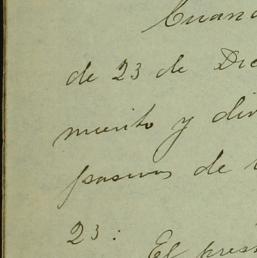 Cuand
de 23 de Dic
miento y di
pasivos de
23:
El pres